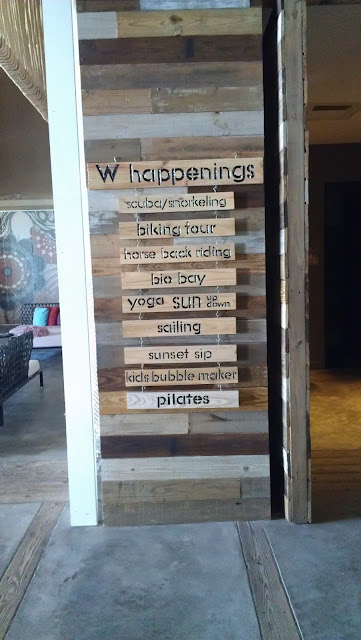 W happenings
scuba/snorkeling
biking tour
horse back riding
bio bay
yoga sun up down
sailing
sunset sip
kids bubble maker
pilates